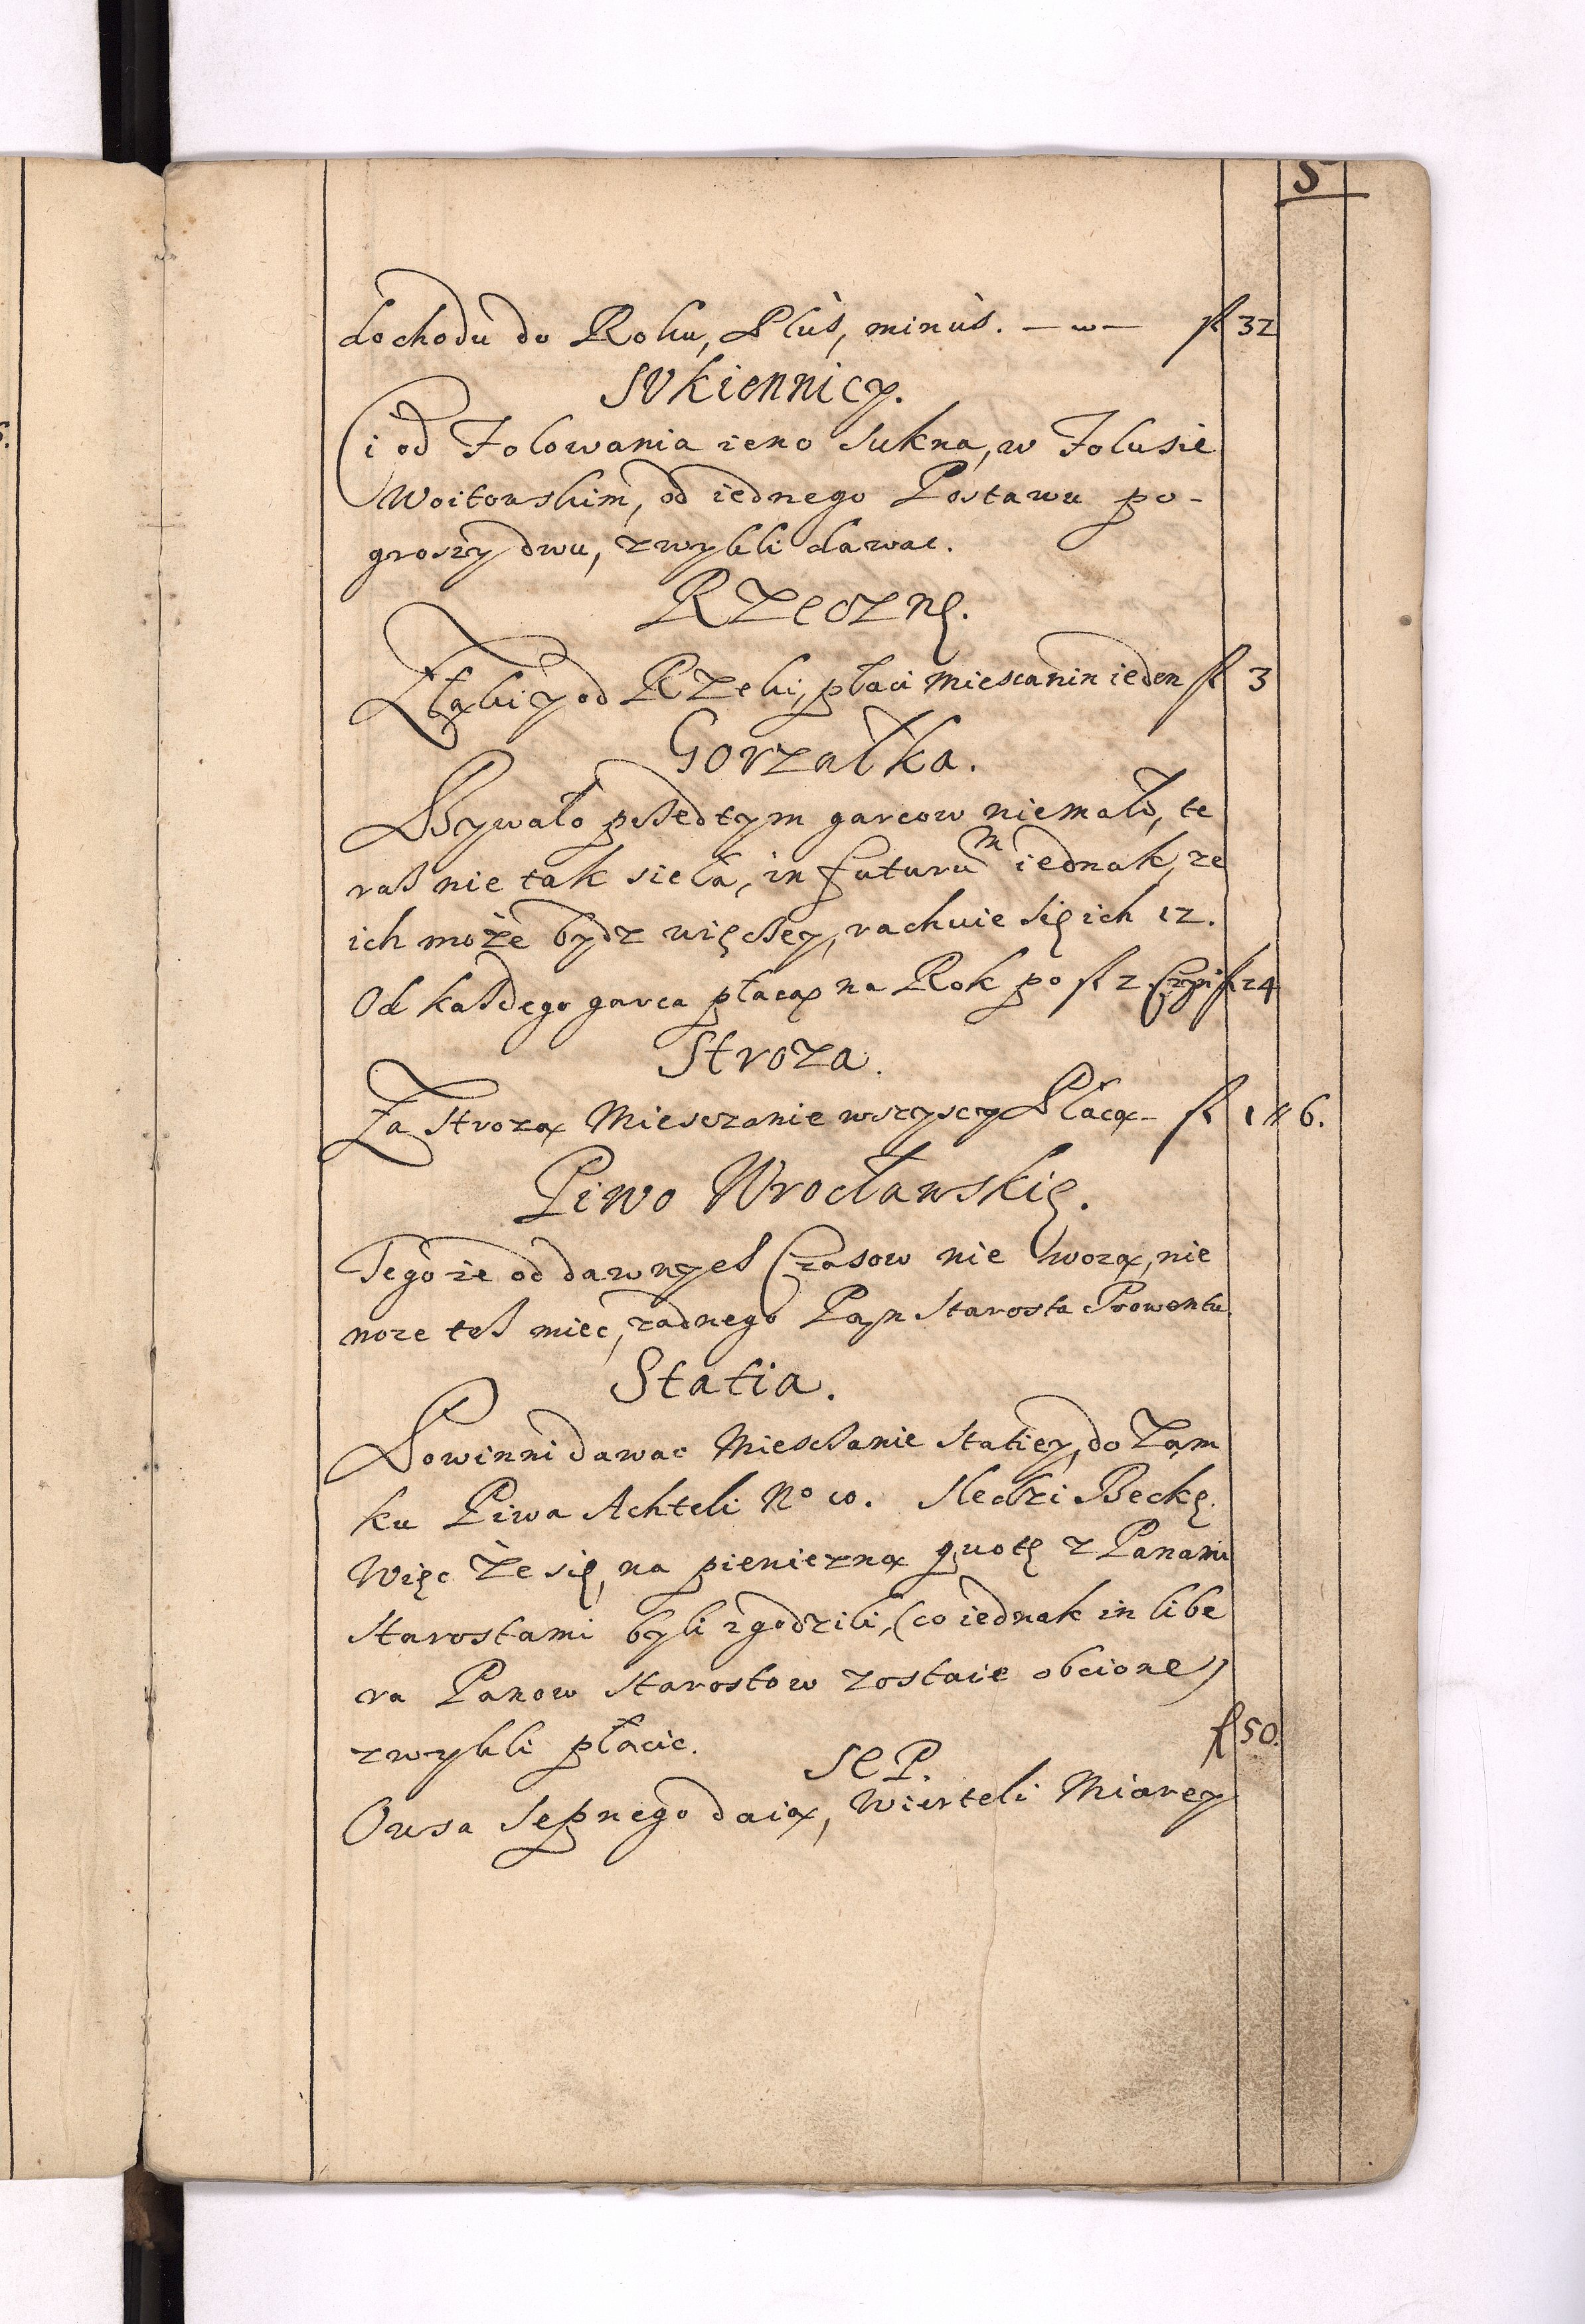 5
dochodu do Roku, Plus, minus. — w — fl 32
SVkiennicy.
Ci od Folowania ieno Sukna, w Folusie
Woitowskim, od iednego Postawu po-
groszy dwu, zwykli dawac.
RZeczne.
Z łąki y od RZeki, płaci Miescanin ieden fl 3
Gorzałka.
Bywało pSedtym garcow niemało, te
raS nie tak sieła, in futurum iednak, ze
ich może bydz więcSey, rachuie się ich 12.
Od kaSdego garca płacą na Rok po fl 2. Czyni fl 24
Stroza.
Za Strozą Miesczanie wszyscy Płacą fl 1 // 6.
Piwo Wrocławskie.
Tego ze od dawnych Czasow nie wozą, nie
moze teS miec, zadnego Pan Starosta Prowentu.
Statia.
Powinni dawac MiescSanie Statiey, do Zam
ku Piwa Achteli No 10. Sledzi Beckę.
Więc Ze się, na pieniezną quotę z Panami
Starostami byli zgodzili, (co iednak in libe
ra Panow Starostow zostaie obcione)
zwykli płacic. fl 50.
SeP.
Owsa Sepnego daią, Wierteli Miarey